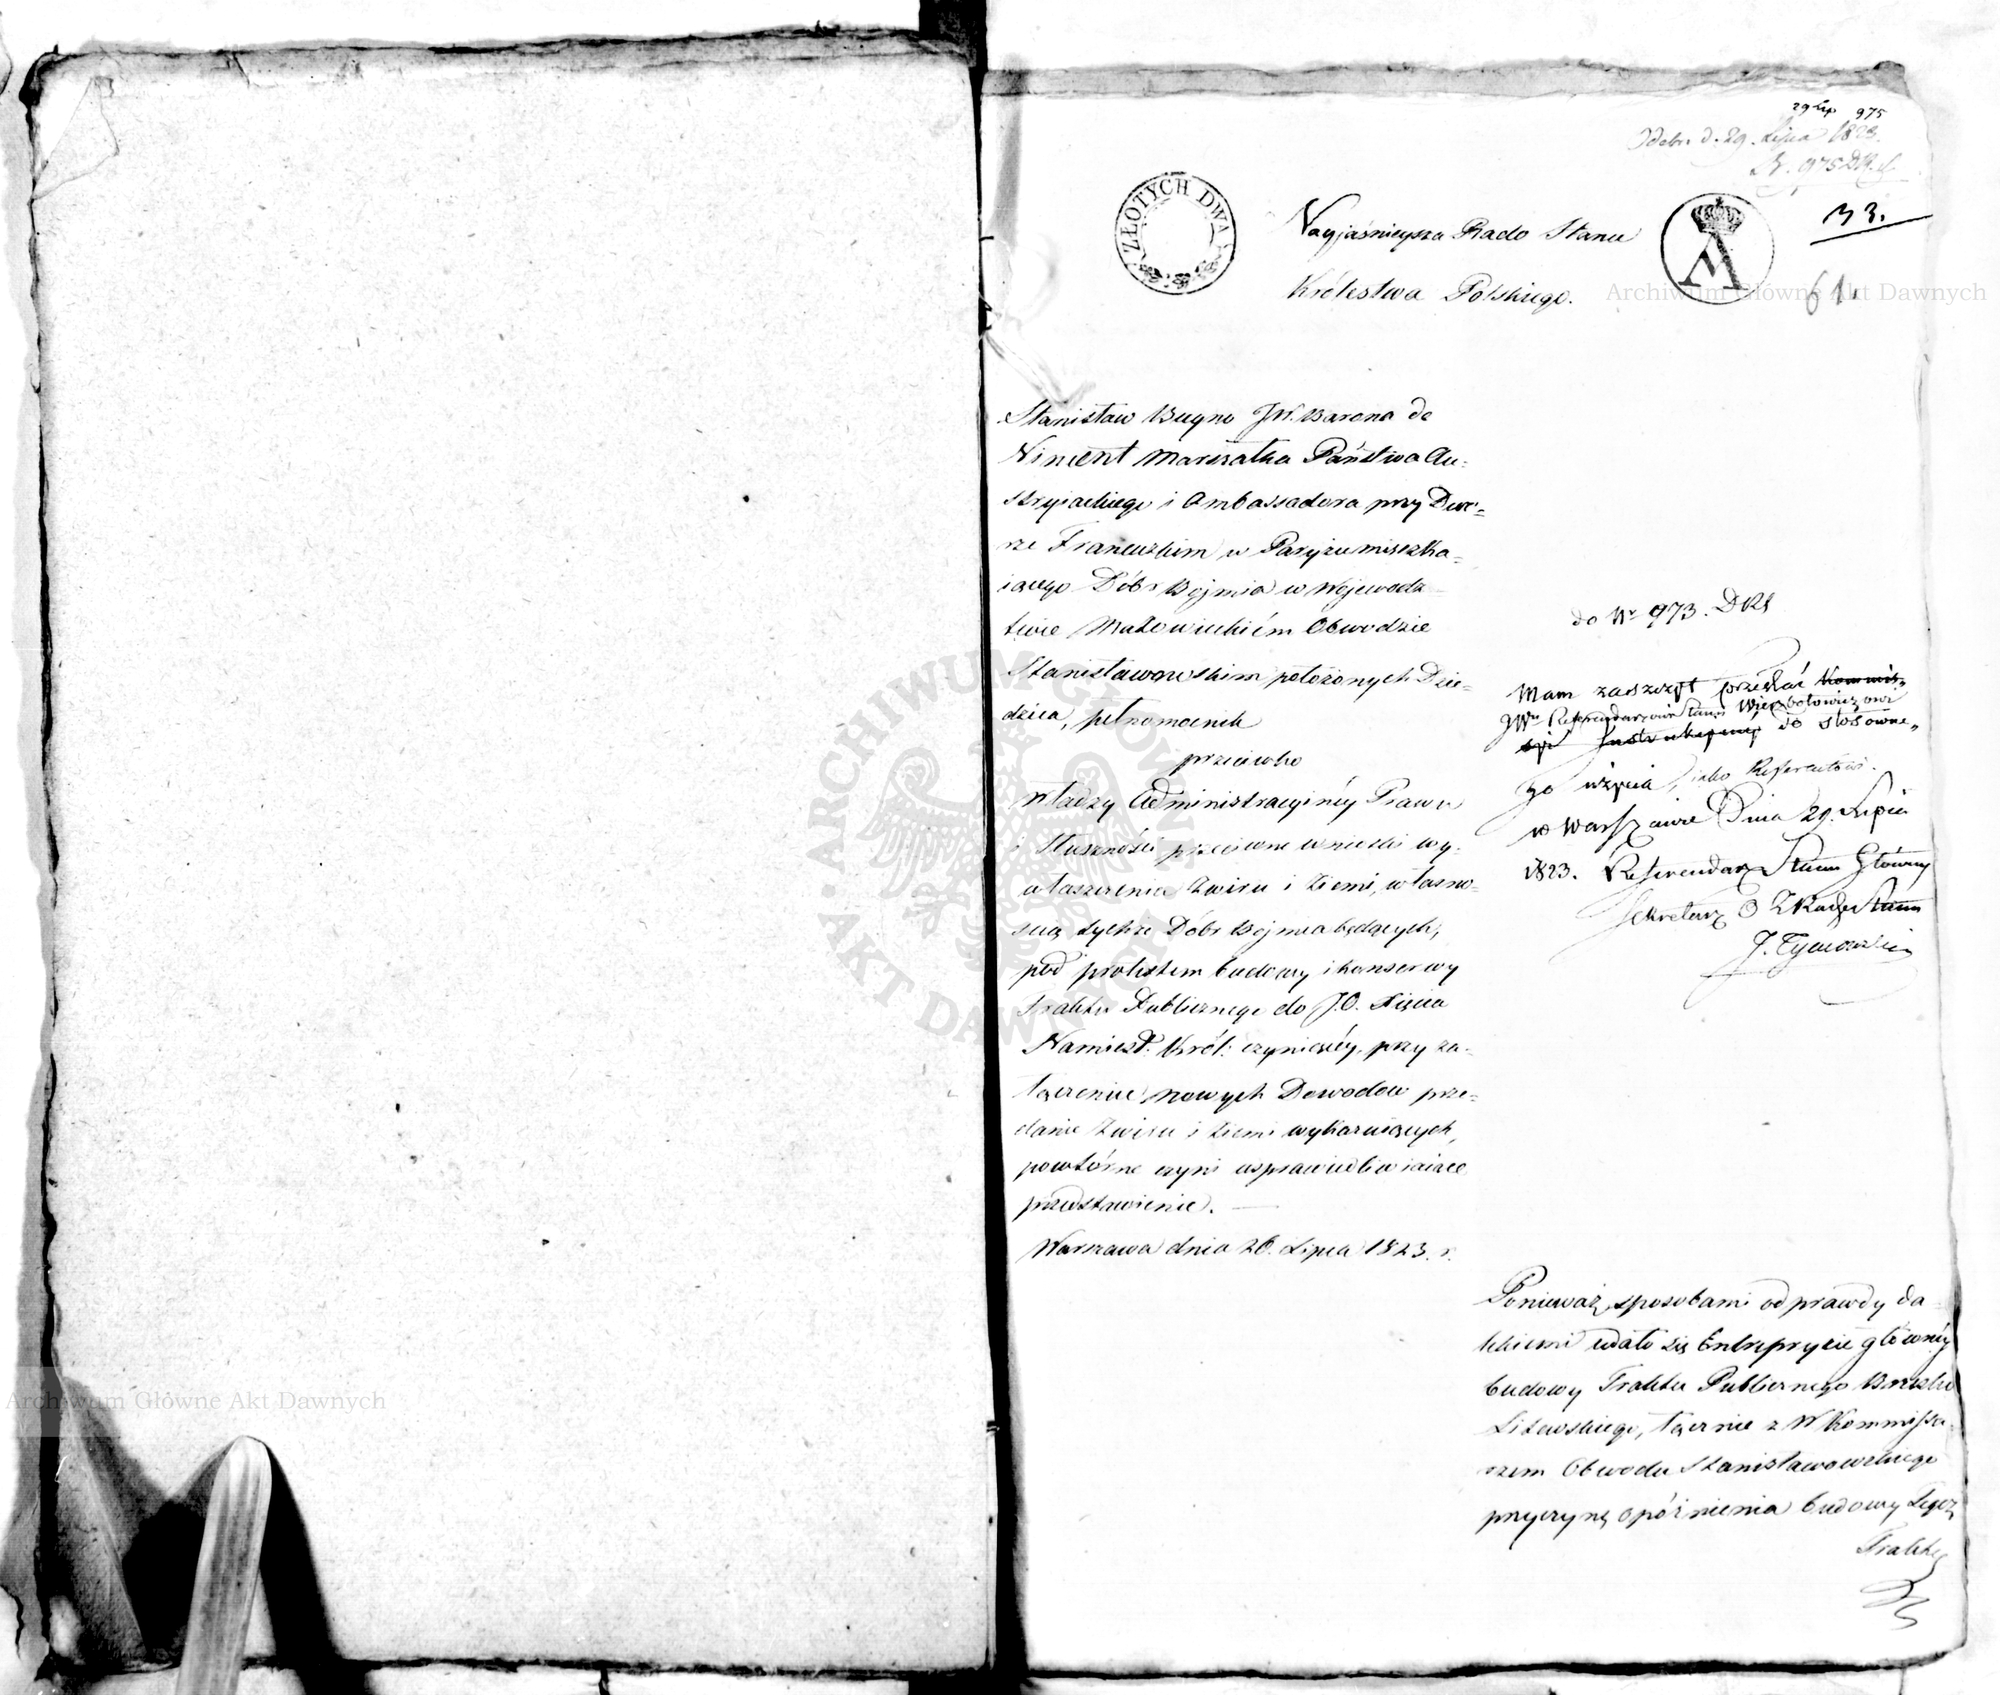 29 Lip 975
Odebr. d. 29. Lipca 1823.
N. 975 DKS
ZŁOTYCH DWA
33.
61.
Nayjaśnieysza Rado Stanu
Królestwa Polskiego.
Stanisław Bugno JW. Barona de
Vincent Marszałka Państwa Au-
stryiackiego i Ambassadora przy Dwo-
rze Francuzkim w Paryżu mieszka-
iącego Dóbr Boymia w Wojewodz-
twie Mazowieckiém Obwodzie
Stanisławowskim położonych Dzie-
dzica, pełnomocnik
przeciwko
Władzy Administracyinéy Prawu
i Słuszności przeciwne wnioski wy-
właszczenia Żwiru i Ziemi, własno-
scią tychże Dóbr Boymia będących,
pod protextem budowy i konserwy
Traktu Publicznego do J.O. Xięcia
Namiest. Król. czyniącéy, przy za-
łączeniu nowych Dowodów prze-
danie Żwiru i Ziemi wykazuiących,
powtórne czyni usprawiedliwiaiące
przedstawienie.
Warszawa dnia 26. Lipca 1823. r.
do Nr 973. DKS
Mam zaszczyt przesłać Kommis-
JWu Referendarzowi Stanu Wierzbołowiczowi
syi Instrukcyinéy do stosowne-
go użycia, jako Referentowi.
w Warszawie Dnia 29. Lipca
1823. Referendarz Stanu Główny
Sekretarz Stanu
J. Tymowski
Ponieważ sposobami od prawdy da-
lekiemi udało się Entrepryzie głównéy
budowy Traktu Publicznego Brzesko
Litewskiego, łącznie z W Kommissa-
rzem Obwodu Stanisławowskiego
przyczynę opóźnienia budowy Tegoż
Traktu
ARCHIWUM GŁÓWNE AKT DAWNYCH
Archiwum Główne Akt Dawnych
Archiwum Główne Akt Dawnych